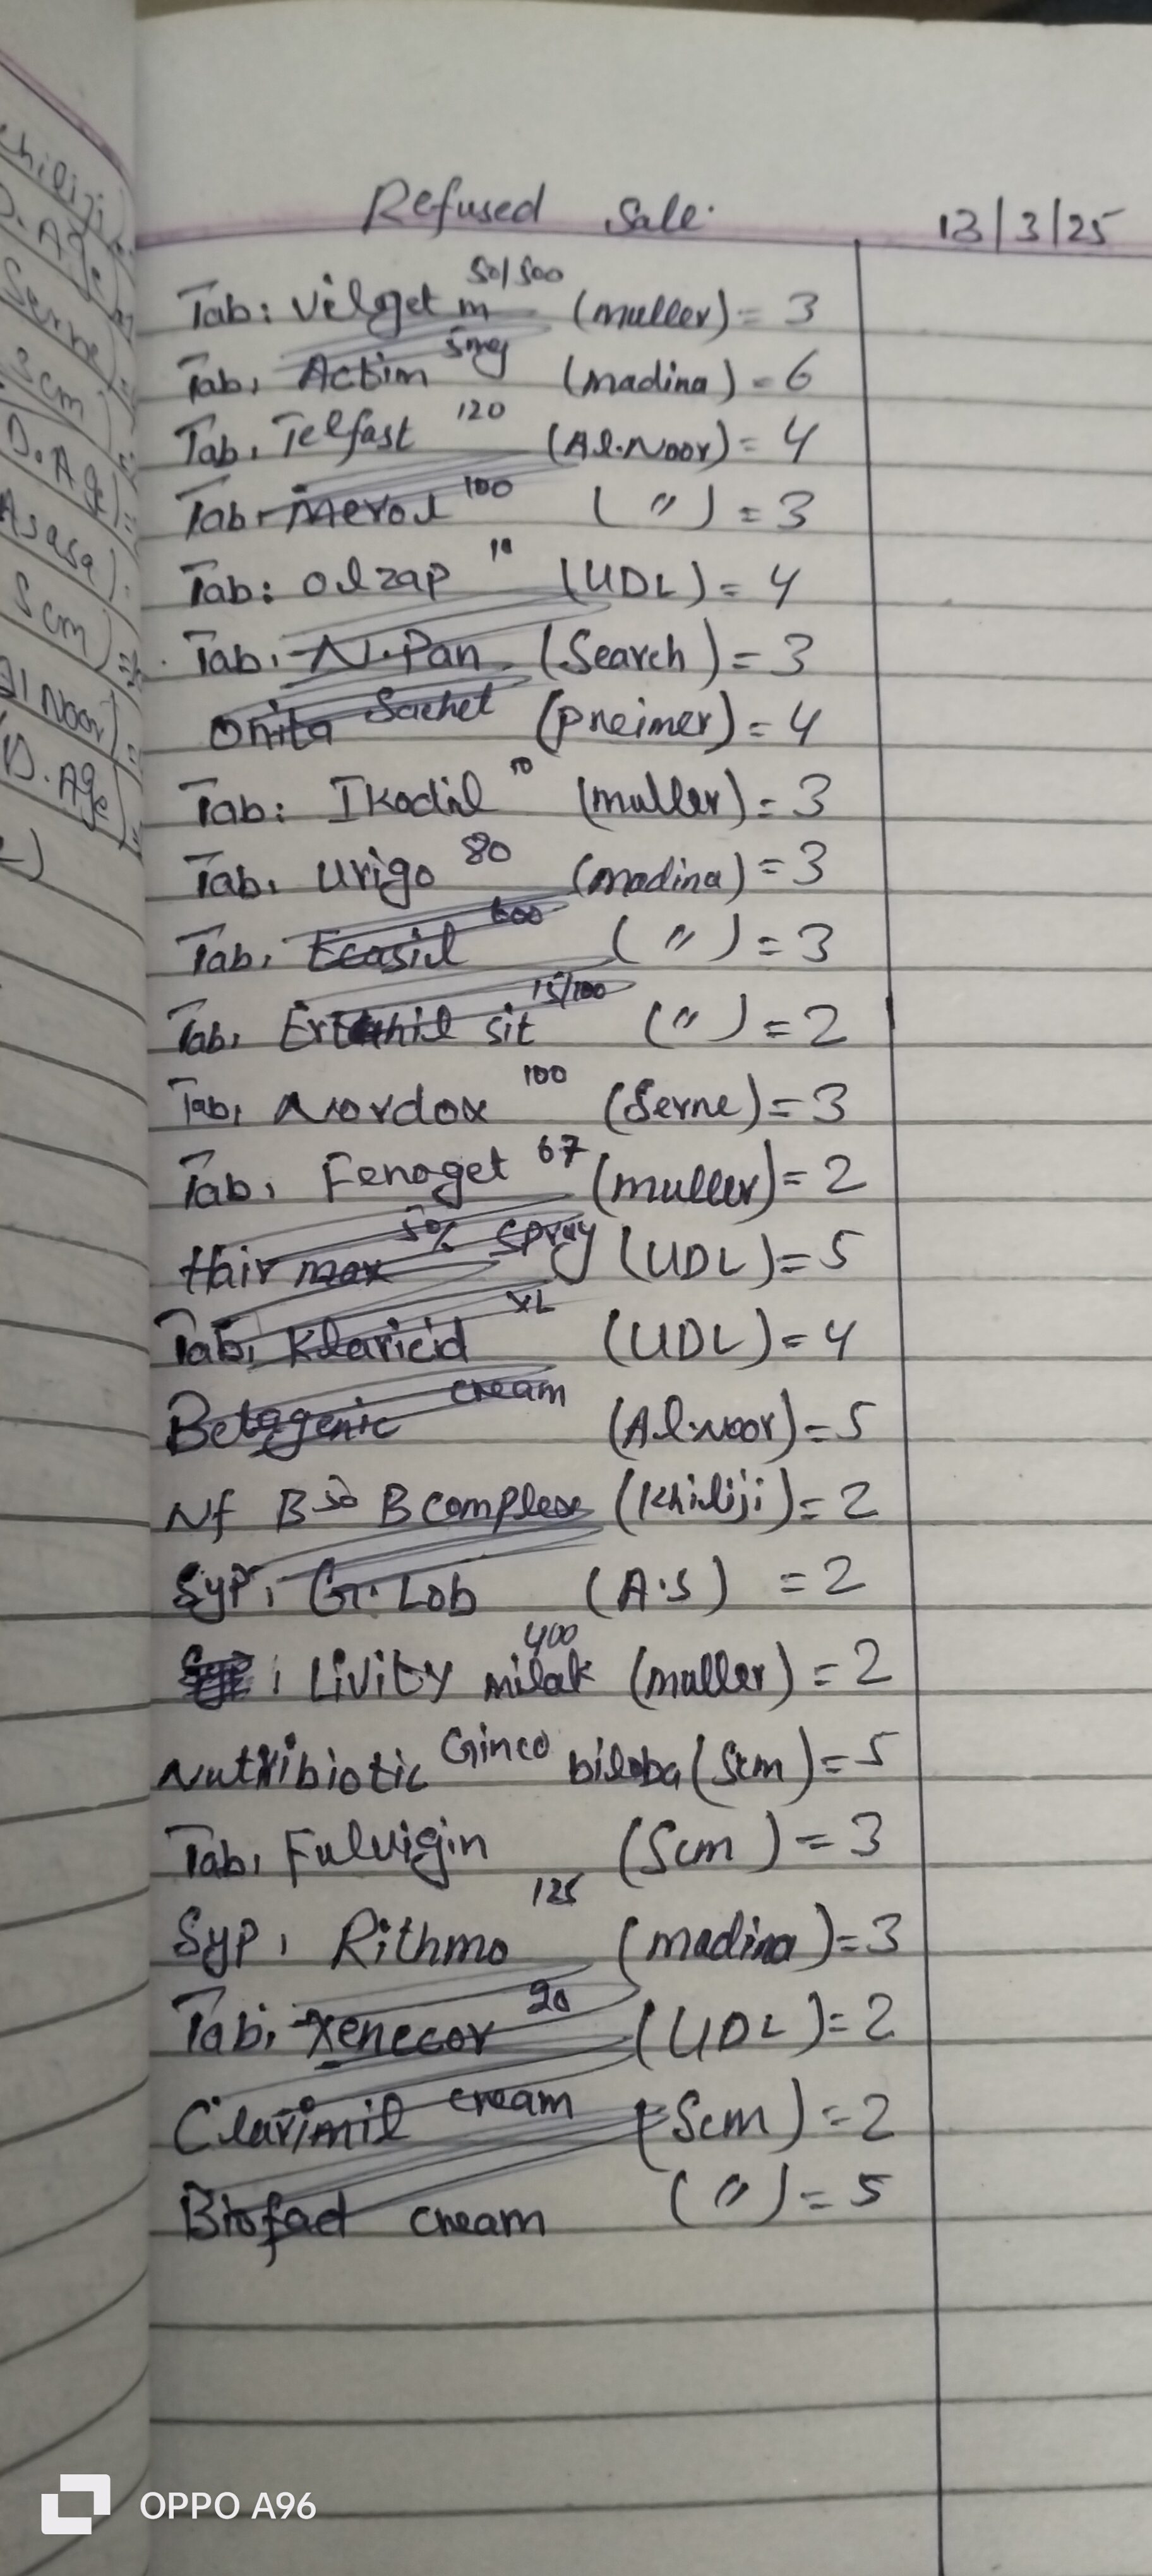 Refused Sale
13/3/25
Tab: Vilget m 50/500 (muller) = 3
Tab, Actim 5mg (madina) = 6
Tab, Telfast 120 (Al.Noor) = 4
Tab, Merol 100 ( " ) = 3
Tab: Olzap 10 (UDL) = 4
Tab, N.Pan (Search) = 3
Onita Sachet (preimer) = 4
Tab: Ikodil 10 (muller) = 3
Tab, Urigo 80 (madina) = 3
Tab, Ecasil 600 ( " ) = 3
Tab, sit 15/100 ( " ) = 2
Tab, Nordox 100 (Serne) = 3
Tab, Fenoget 67 (muller) = 2
Hair max 5% Spray (UDL) = 5
Tab, Klaricid XL (UDL) = 4
Betagenic cream (Al.Noor) = 5
Nf B50 B complex (Khiliji) = 2
Syp, G.Lob (A.S) = 2
: Livity milak 400 (muller) = 2
Nutribiotic Ginco biloba (Scm) = 5
Tab, Fulvigin (Scm) = 3
Syp, Rithmo 125 (madina) = 3
Tab, Xenecor 20 (UDL) = 2
Clarimil cream (Scm) = 2
Biofact cream ( " ) = 5
khiliji
D.Age
Serne
Scm
D.Age
Asasa)
Scm)
Al Noor)
D.Age
OPPO A96